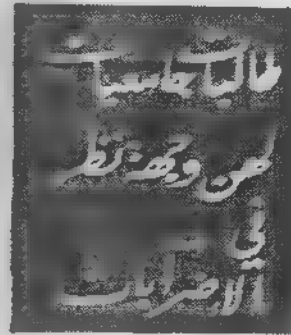 طالبات جامعيات
لهن وجهة نظر
في
الاضرابات